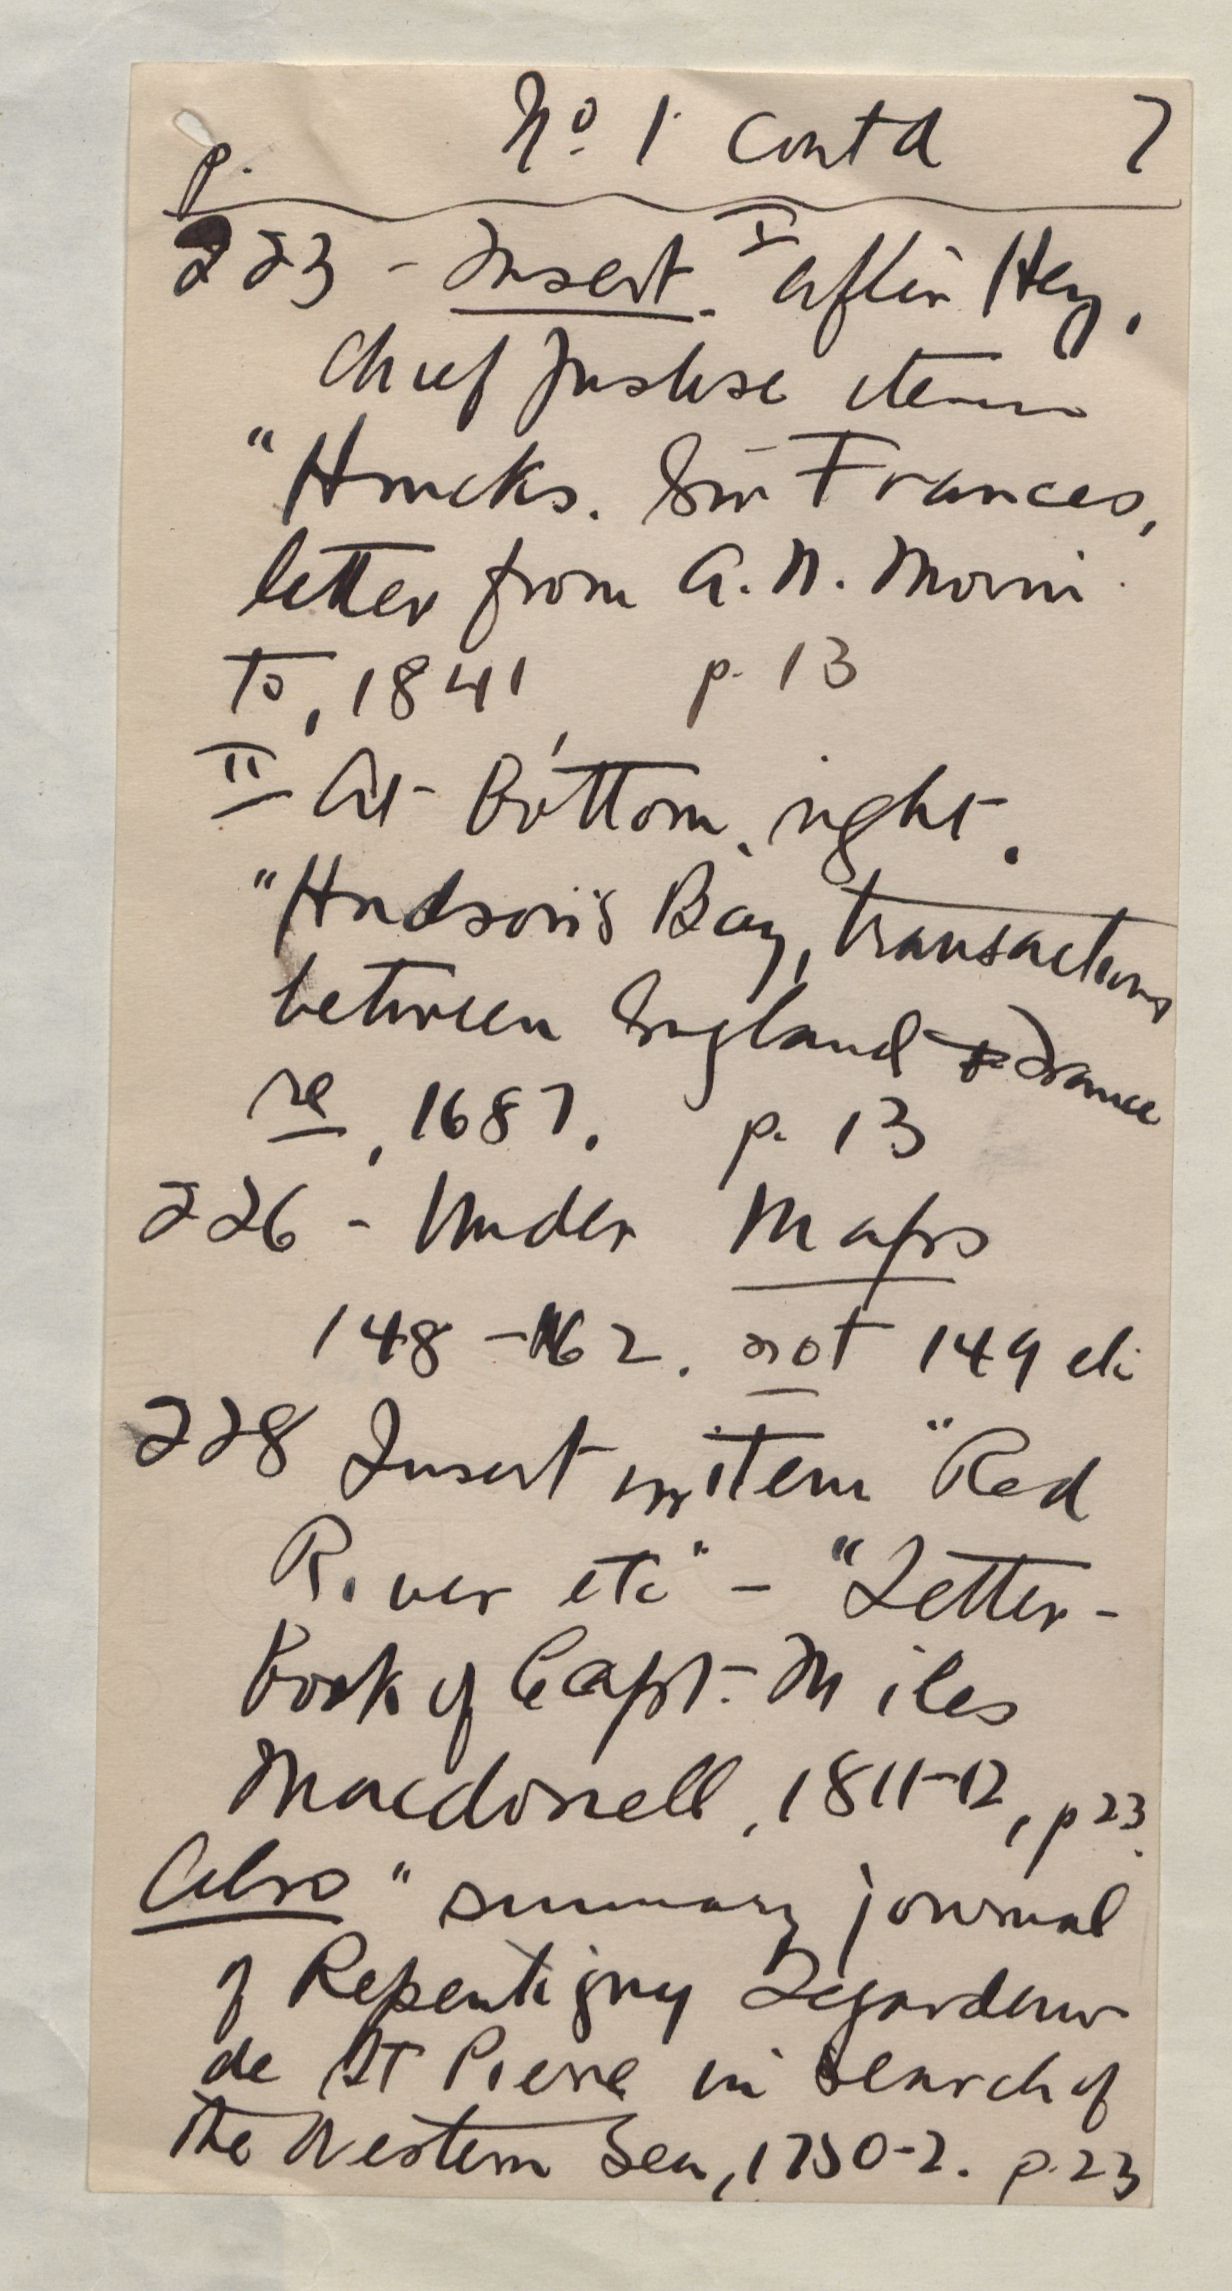 p. No. 1. Contd 7
223 - Insert. I after Hey,
Chief Justise item
"Hincks. Sir Frances,
letter from A.N. Morin
to, 1841 p. 13
II At Bottom, right.
"Hudson's Bay, transactions
between England & France
re, 1687. p. 13
226 - Under Maps
148-162. not 149 etc
228 Insert in item "Red
River etc" - "Letter-
Book of Capt. Miles
Macdonell, 1811-12, p 23.
Also "summary journal
of Repentigny Legardeur
de St Pierre in search of
the Western Sea, 1750-2. p. 23